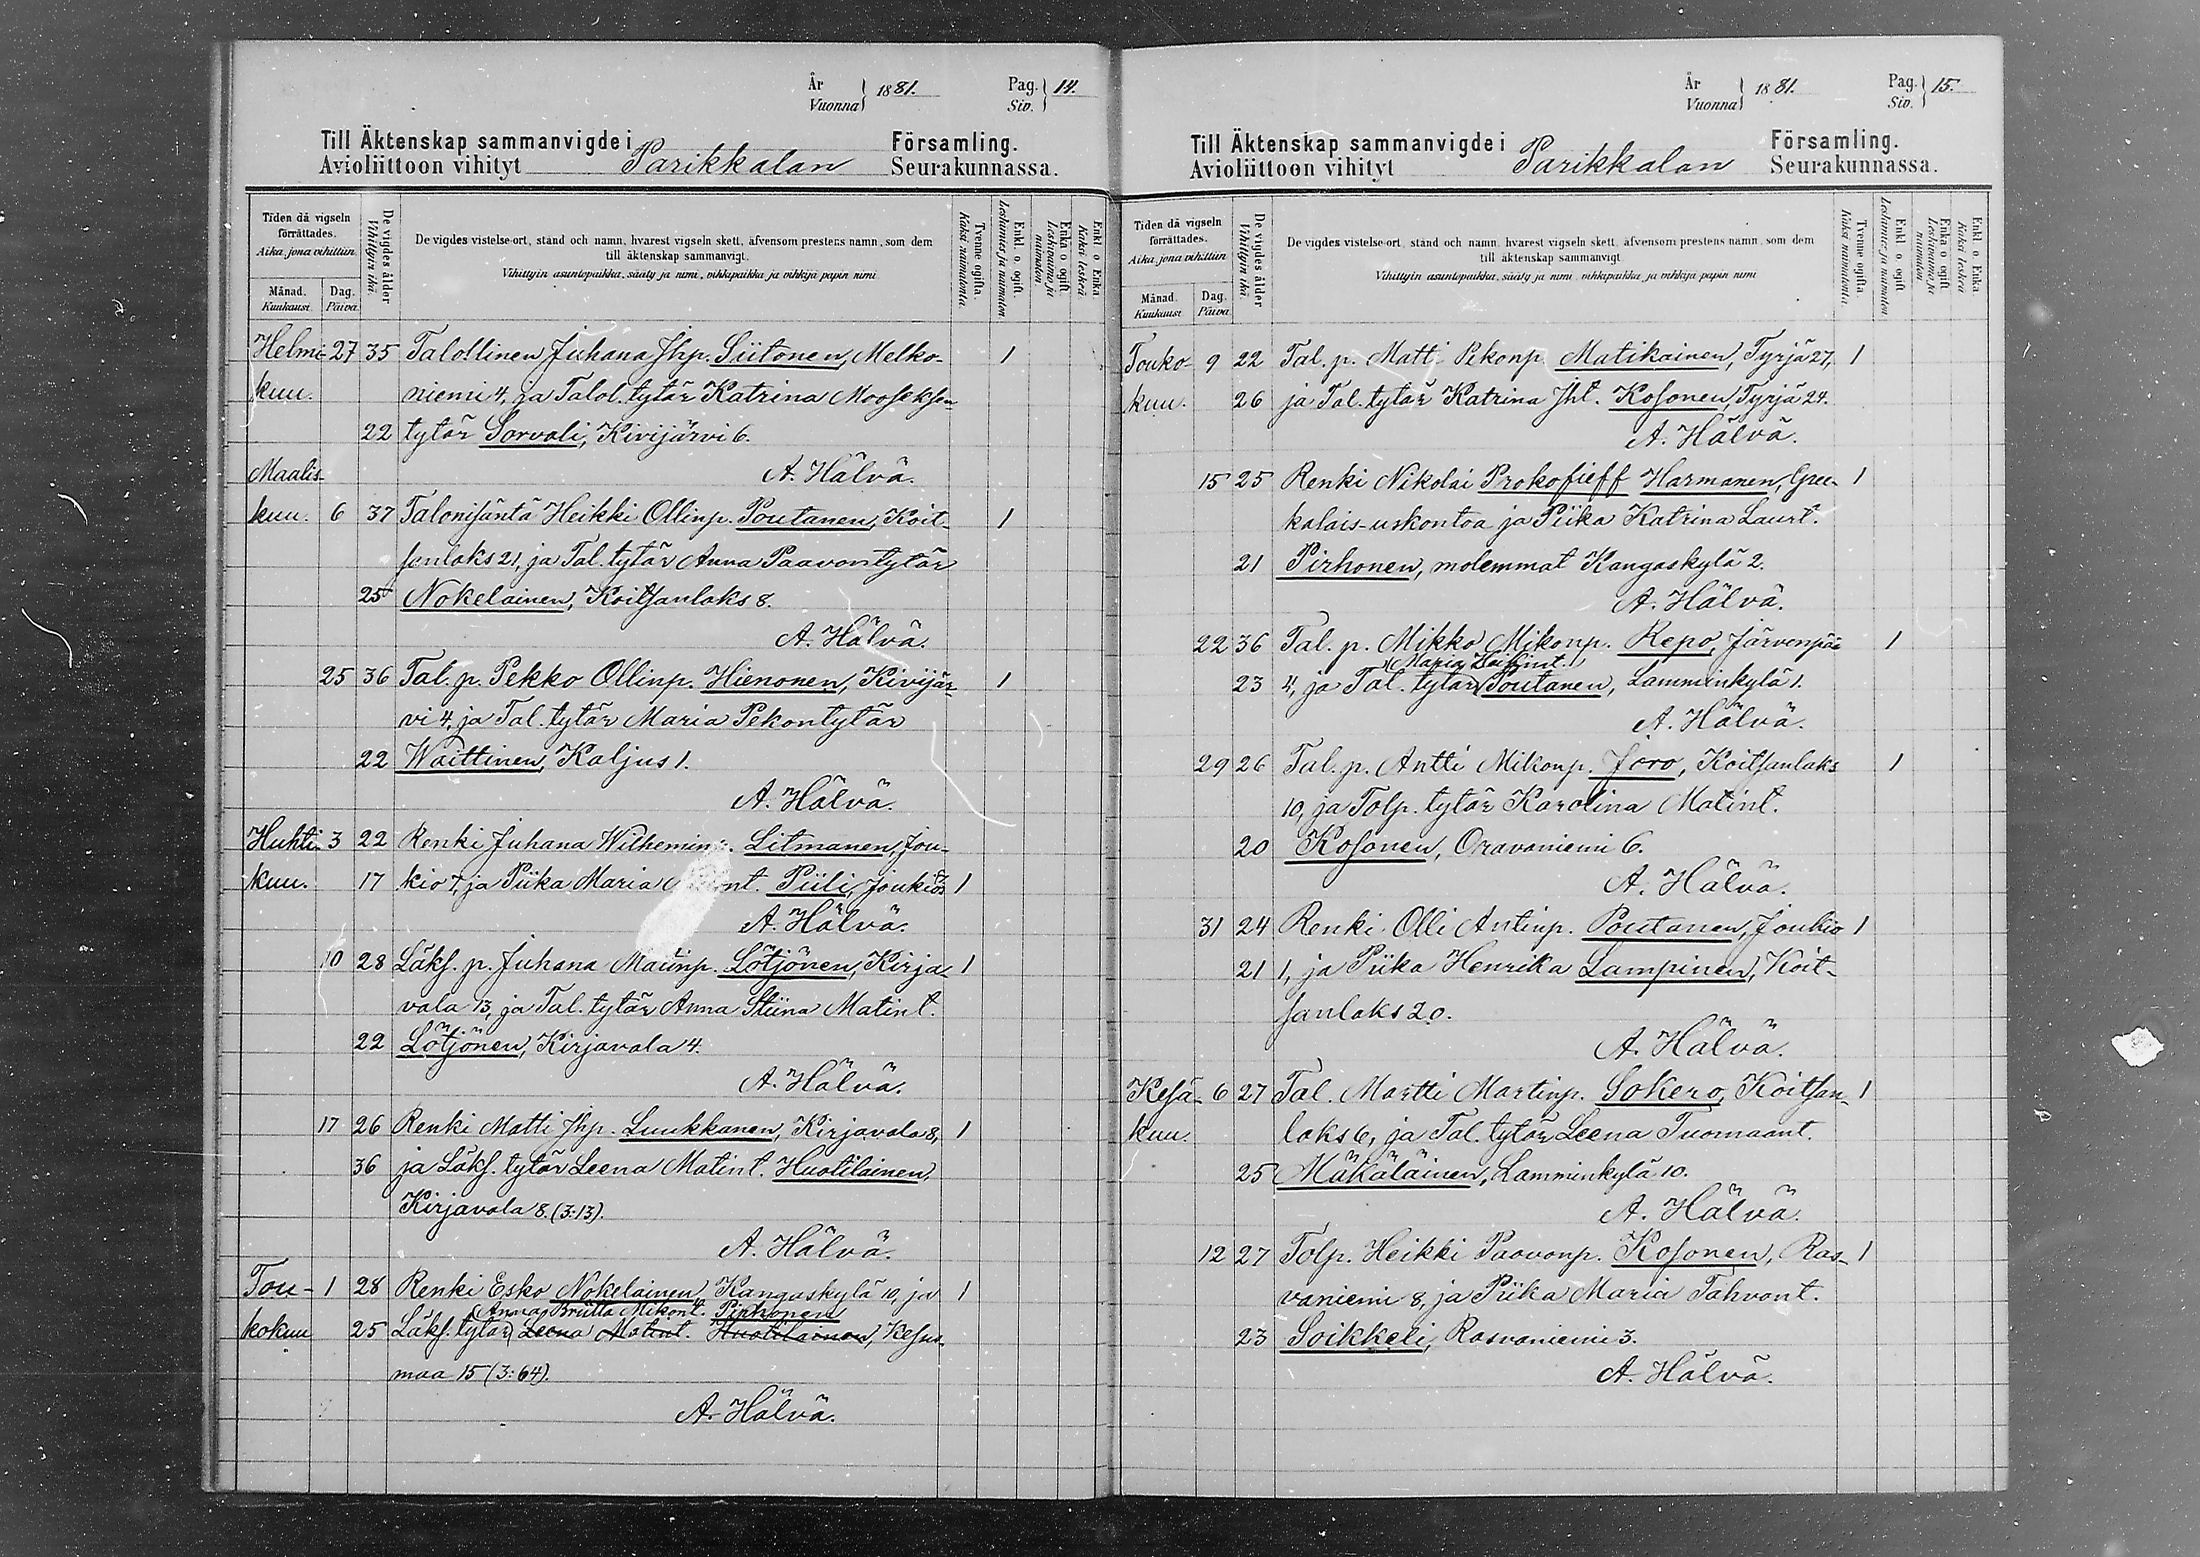 År
Vuonna } 1881.
Pag.
Siv. } 14.
Till Äktenskap sammanvigde i Församling.
Avioliittoon vihityt Parikkalan Seurakunnassa.
Tiden då vigseln
förrättades.
Aika, jona vihittiin.
Månad. Dag.
Kuukausi. Päivä.
De vigdes ålder
Vihittyin ikä.
De vigdes vistelse-ort, stånd och namn, hvarest vigseln skett, äfvensom prestens namn, som dem
till äktenskap sammanvigt.
Vihittyin asuntopaikka, sääty ja nimi, vihkipaikka ja vihkijä papin nimi.
Tvenne ogifta.
Kaksi naimatonta.
Enkl. o. ogift.
Leskimies ja naimaton
Enka o. ogift
Leskivaimo ja
naimaton
Enkl. o. Enka
Kaksi leskeä
Helmi- 27 35 Talollinen Juhana Jhp. Siitonen, Melko- 1
kuu. niemi 4, ja Talol. tytär Katrina Moosekksen
22 tytär Sorvali, Kivijärvi 6.
Maalis- A. Hälvä.
kuu. 6 37 Talonisäntä Heikki Ollinp. Poutanen, Koit- 1
sanlaks 21, ja Tal. tytär Anna Paavontytär
25 Nokelainen, Koitsanlaks 8.
A. Hälvä.
25 36 Tal. p. Pekko Ollinp. Hienonen, Kivijär- 1
vi 4, ja Tal. tytär Maria Pekontytär
22 Waittinen, Kaljus 1.
A. Hälvä.
Huhti- 3 22 Renki Juhana Wilhemin Litmanen, Jou-
kuu. 17 kio 7, ja Piika Maria Piili, Joukio 1
A. Hälvä.
10 28 Läks. p. Juhana Matinp. Lötjönen, Kirja- 1
vala 13, ja Tal. tytär Anna Stiina Matint.
22 Lötjönen, Kirjavala 4.
A. Hälvä.
17 26 Renki Matti Jhp. Luukkanen, Kirjavala 8, 1
36 ja Läks. tytär Leena Matint. Huotilainen,
Kirjavala 8. (3:13).
A. Hälvä.
Tou- 1 28 Renki Esko Nokelainen, Kangaskylä 10, ja 1
Anna Briitta Mikont. Pirhonen
kokuu 25 Läks. tytär Leena Matint. Huotilainen, Kesus-
maa 15 (3:64).
A. Hälvä.
År
Vuonna } 1881.
Pag.
Siv. } 15.
Till Äktenskap sammanvigde i Församling.
Avioliittoon vihityt Parikkalan Seurakunnassa.
Tiden då vigseln
förrättades.
Aika, jona vihittiin.
Månad. Dag.
Kuukausi. Päivä.
De vigdes ålder
Vihittyin ikä.
De vigdes vistelse-ort, stånd och namn, hvarest vigseln skett, äfvensom prestens namn, som dem
till äktenskap sammanvigt.
Vihittyin asuntopaikka, sääty ja nimi, vihkipaikka ja vihkijä papin nimi
Tvenne ogifta.
Kaksi naimatonta.
Enkl. o. ogift
Leskimies ja naimaton
Enka o. ogift
Leskivaimo ja
naimaton
Enkl. o. Enka.
Kaksi leskeä
Touko- 9 22 Tal. p. Matti Pekonp. Matikainen, Tyrjä 27, 1
kuu. 26 ja Tal. tytär Katrina Jht. Kosonen, Tyrjä 24.
A. Hälvä.
15 25 Renki Nikolai Prokofieff Harmanen, Gree- 1
kalais-uskontoa ja Piika Katrina Laurt.
21 Pirhonen, molemmat Kangaskylä 2.
A. Hälvä.
22 36 Tal. p. Mikko Mikonp. Repo, Järvenpää 1
Maria
23 4, ja Tal. tytär Poutanen, Lamminkylä 1.
A. Hälvä.
29 26 Tal. p. Antti Mikonp. Joro, Koitsanlaks 1
10, ja Tolp. tytär Karolina Matint.
20 Kosonen, Oravaniemi 6.
A. Hälvä.
31 24 Renki Olli Antinp. Poutanen, Joukio 1
21 1, ja Piika Henrika Lampinen, Koit-
sanlaks 20.
A. Hälvä.
Kesä- 6 27 Tal. Martti Martinp. Sokero, Koitsan- 1
kuu. laks 6, ja Tal. tytär Leena Tuomaant.
25 Mäkäläinen, Lamminkylä 10.
A. Hälvä.
12 27 Tolp. Heikki Paavonp. Kosonen, Ras- 1
vaniemi 8, ja Piika Maria Tahvont.
23 Soikkeli, Rasvaniemi 3.
A. Hälvä.